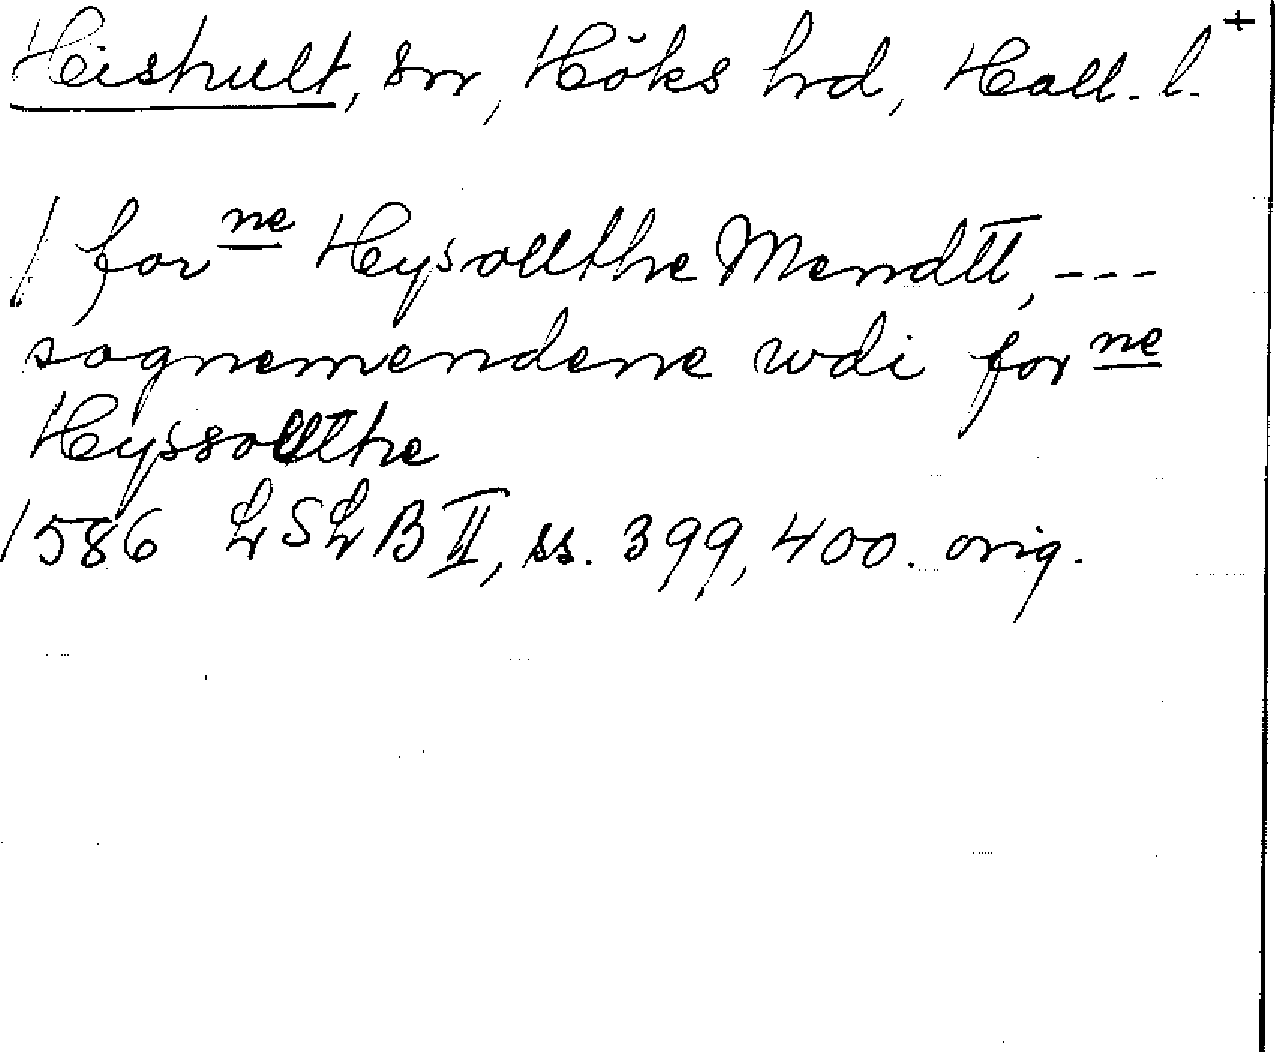 Heishult, sn, Höks hrd, Hall. l. +
/ for ne Heysollthe Mendtt, ---
sognemendene wdi for ne
Heyssollthe
1586 LSLB II, ss. 399, 400. orig.